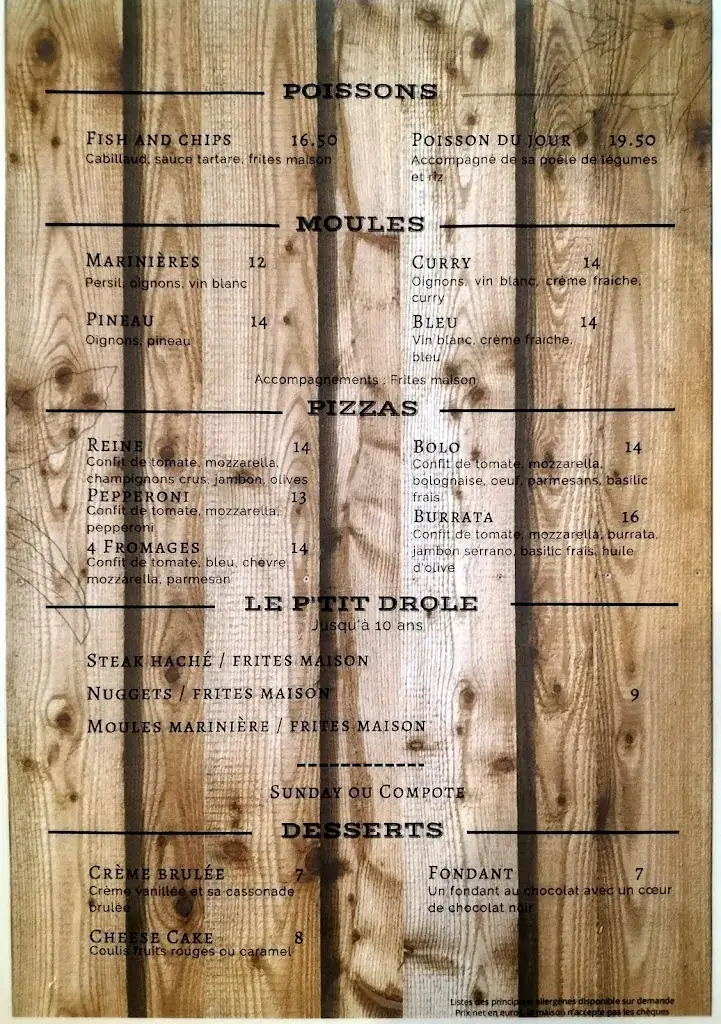 POISSONS
FISH AND CHIPS 16.50
Cabillaud, sauce tartare, frites maison
POISSON DU JOUR 19.50
Accompagné de sa poêlé de légumes
et riz
MOULES
MARINIÈRES 12
Persil, oignons, vin blanc
CURRY 14
Oignons, vin blanc, crème fraiche,
curry
PINEAU 14
Oignons, pineau
BLEU 14
Vin blanc, crème fraiche,
bleu
Accompagnements : Frites maison
PIZZAS
REINE 14
Confit de tomate, mozzarella,
champignons crus, jambon, olives
PEPPERONI 13
Confit de tomate, mozzarella,
pepperoni
4 FROMAGES 14
Confit de tomate, bleu, chevre,
mozzarella, parmesan
BOLO 14
Confit de tomate, mozzarella,
bolognaise, oeuf, parmesans, basilic
frais
BURRATA 16
Confit de tomate, mozzarella, burrata,
jambon serrano, basilic frais, huile
d'olive
LE P'TIT DROLE
Jusqu'à 10 ans
STEAK HACHÉ / FRITES MAISON
NUGGETS / FRITES MAISON 9
MOULES MARINIÈRE / FRITES MAISON
------------
SUNDAY OU COMPOTE
DESSERTS
CRÈME BRULÉE 7
Crème vanillée et sa cassonade
brulée
CHEESE CAKE 8
Coulis fruits rouges ou caramel
FONDANT 7
Un fondant au chocolat avec un cœur
de chocolat noir
Listes des principaux allergènes disponible sur demande
Prix net en euros, la maison n'accepte pas les chèques